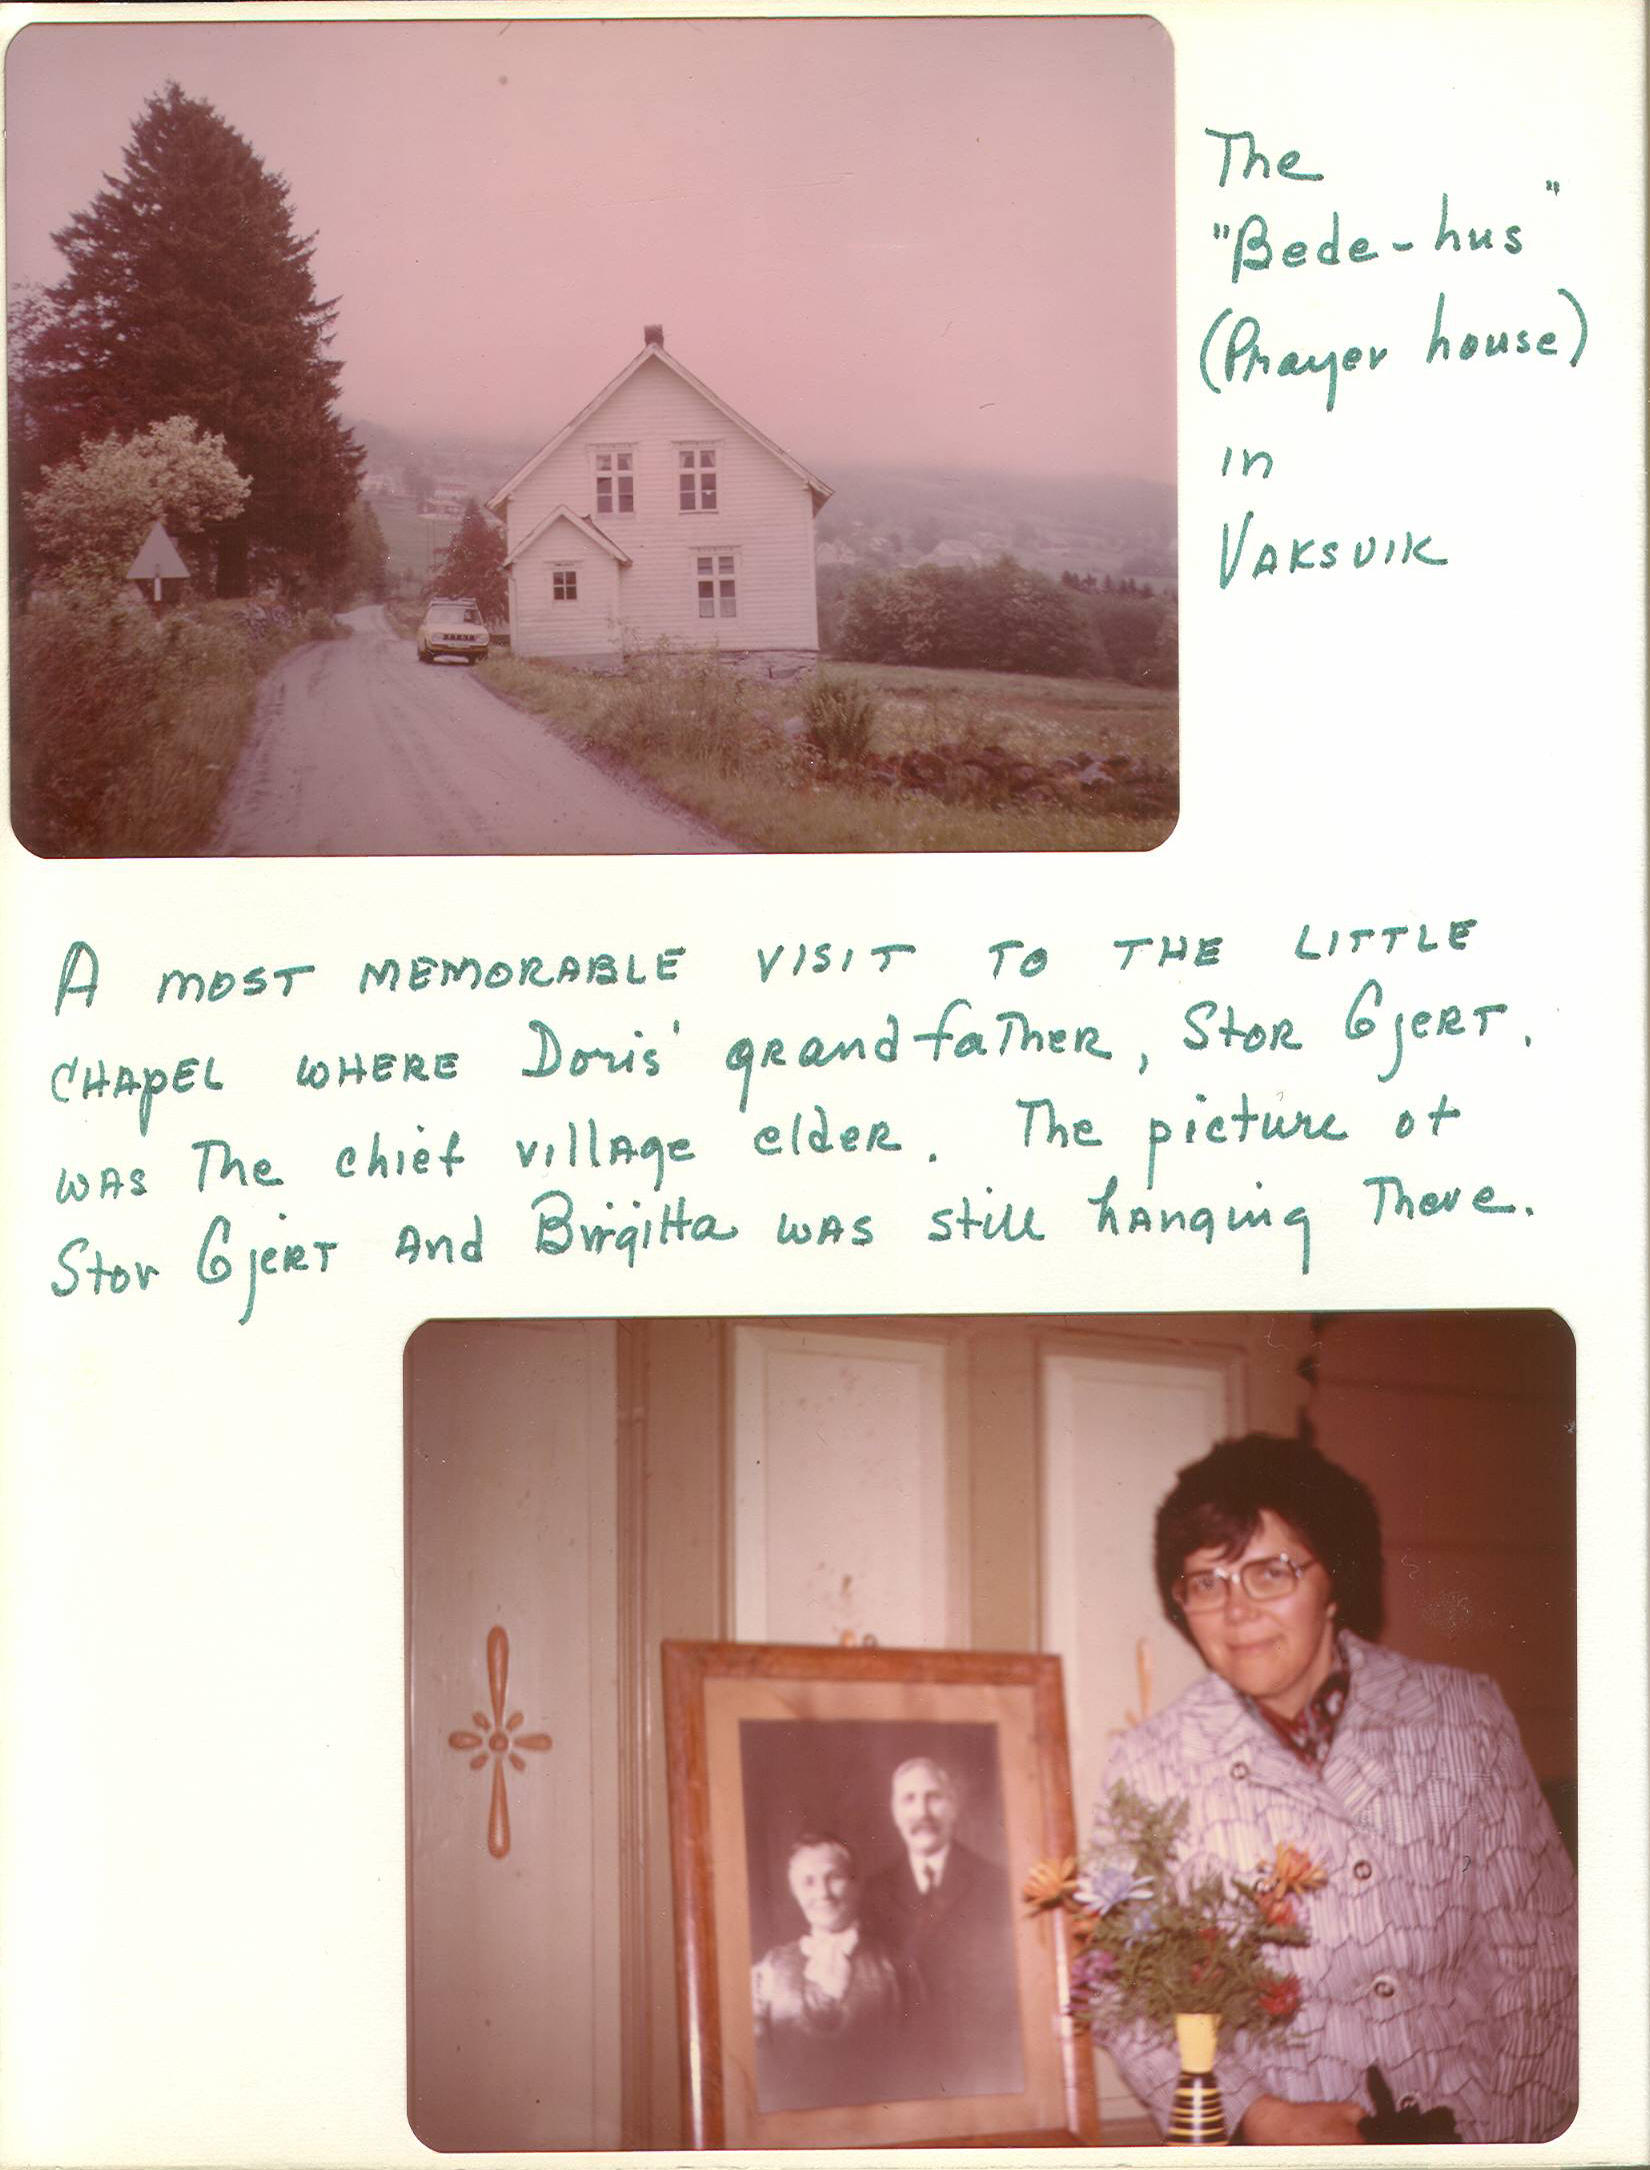 The
"Bede-hus"
(Prayer house)
in
VAKSVIK
A MOST MEMORABLE VISIT TO THE LITTLE
CHAPEL WHERE Doris' grandfather, Stor Gjert.
was The chief village elder. The picture of
Stor Gjert And Birgitta was still hanging There.